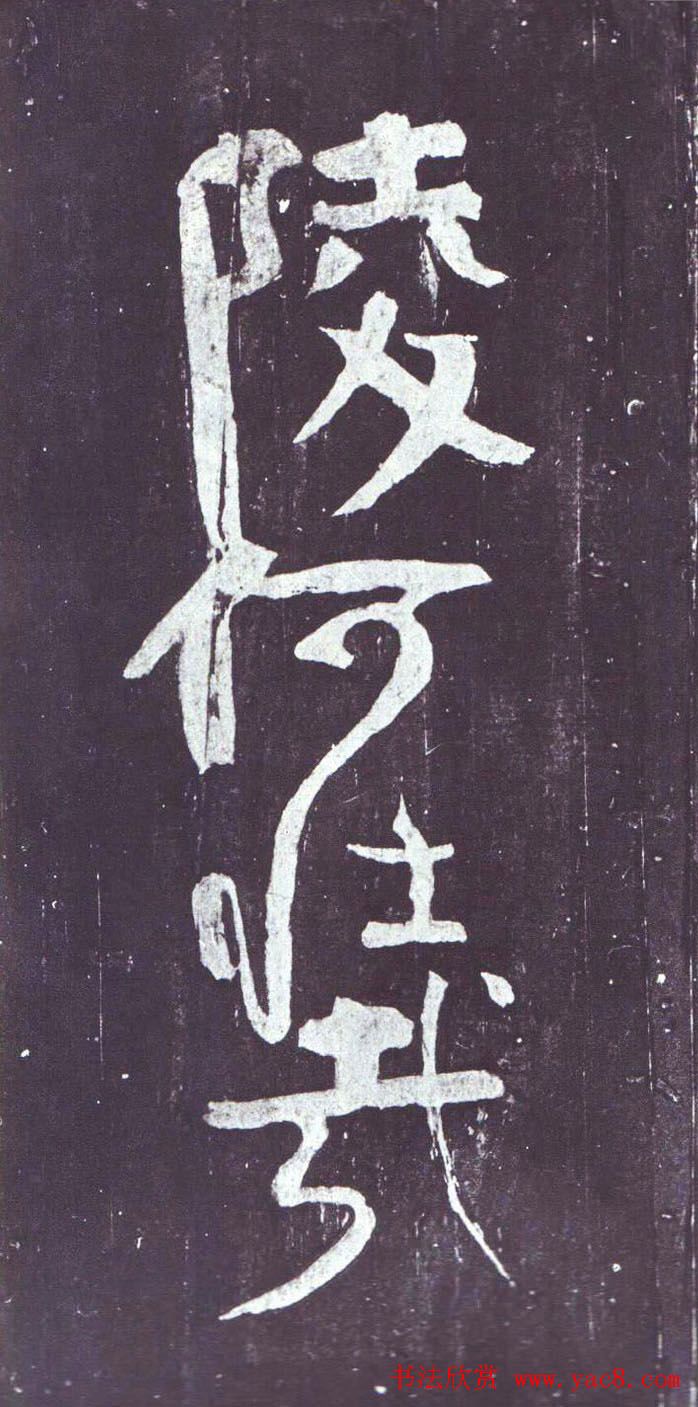 陵何壯哉
书法欣赏 www.yac8.com